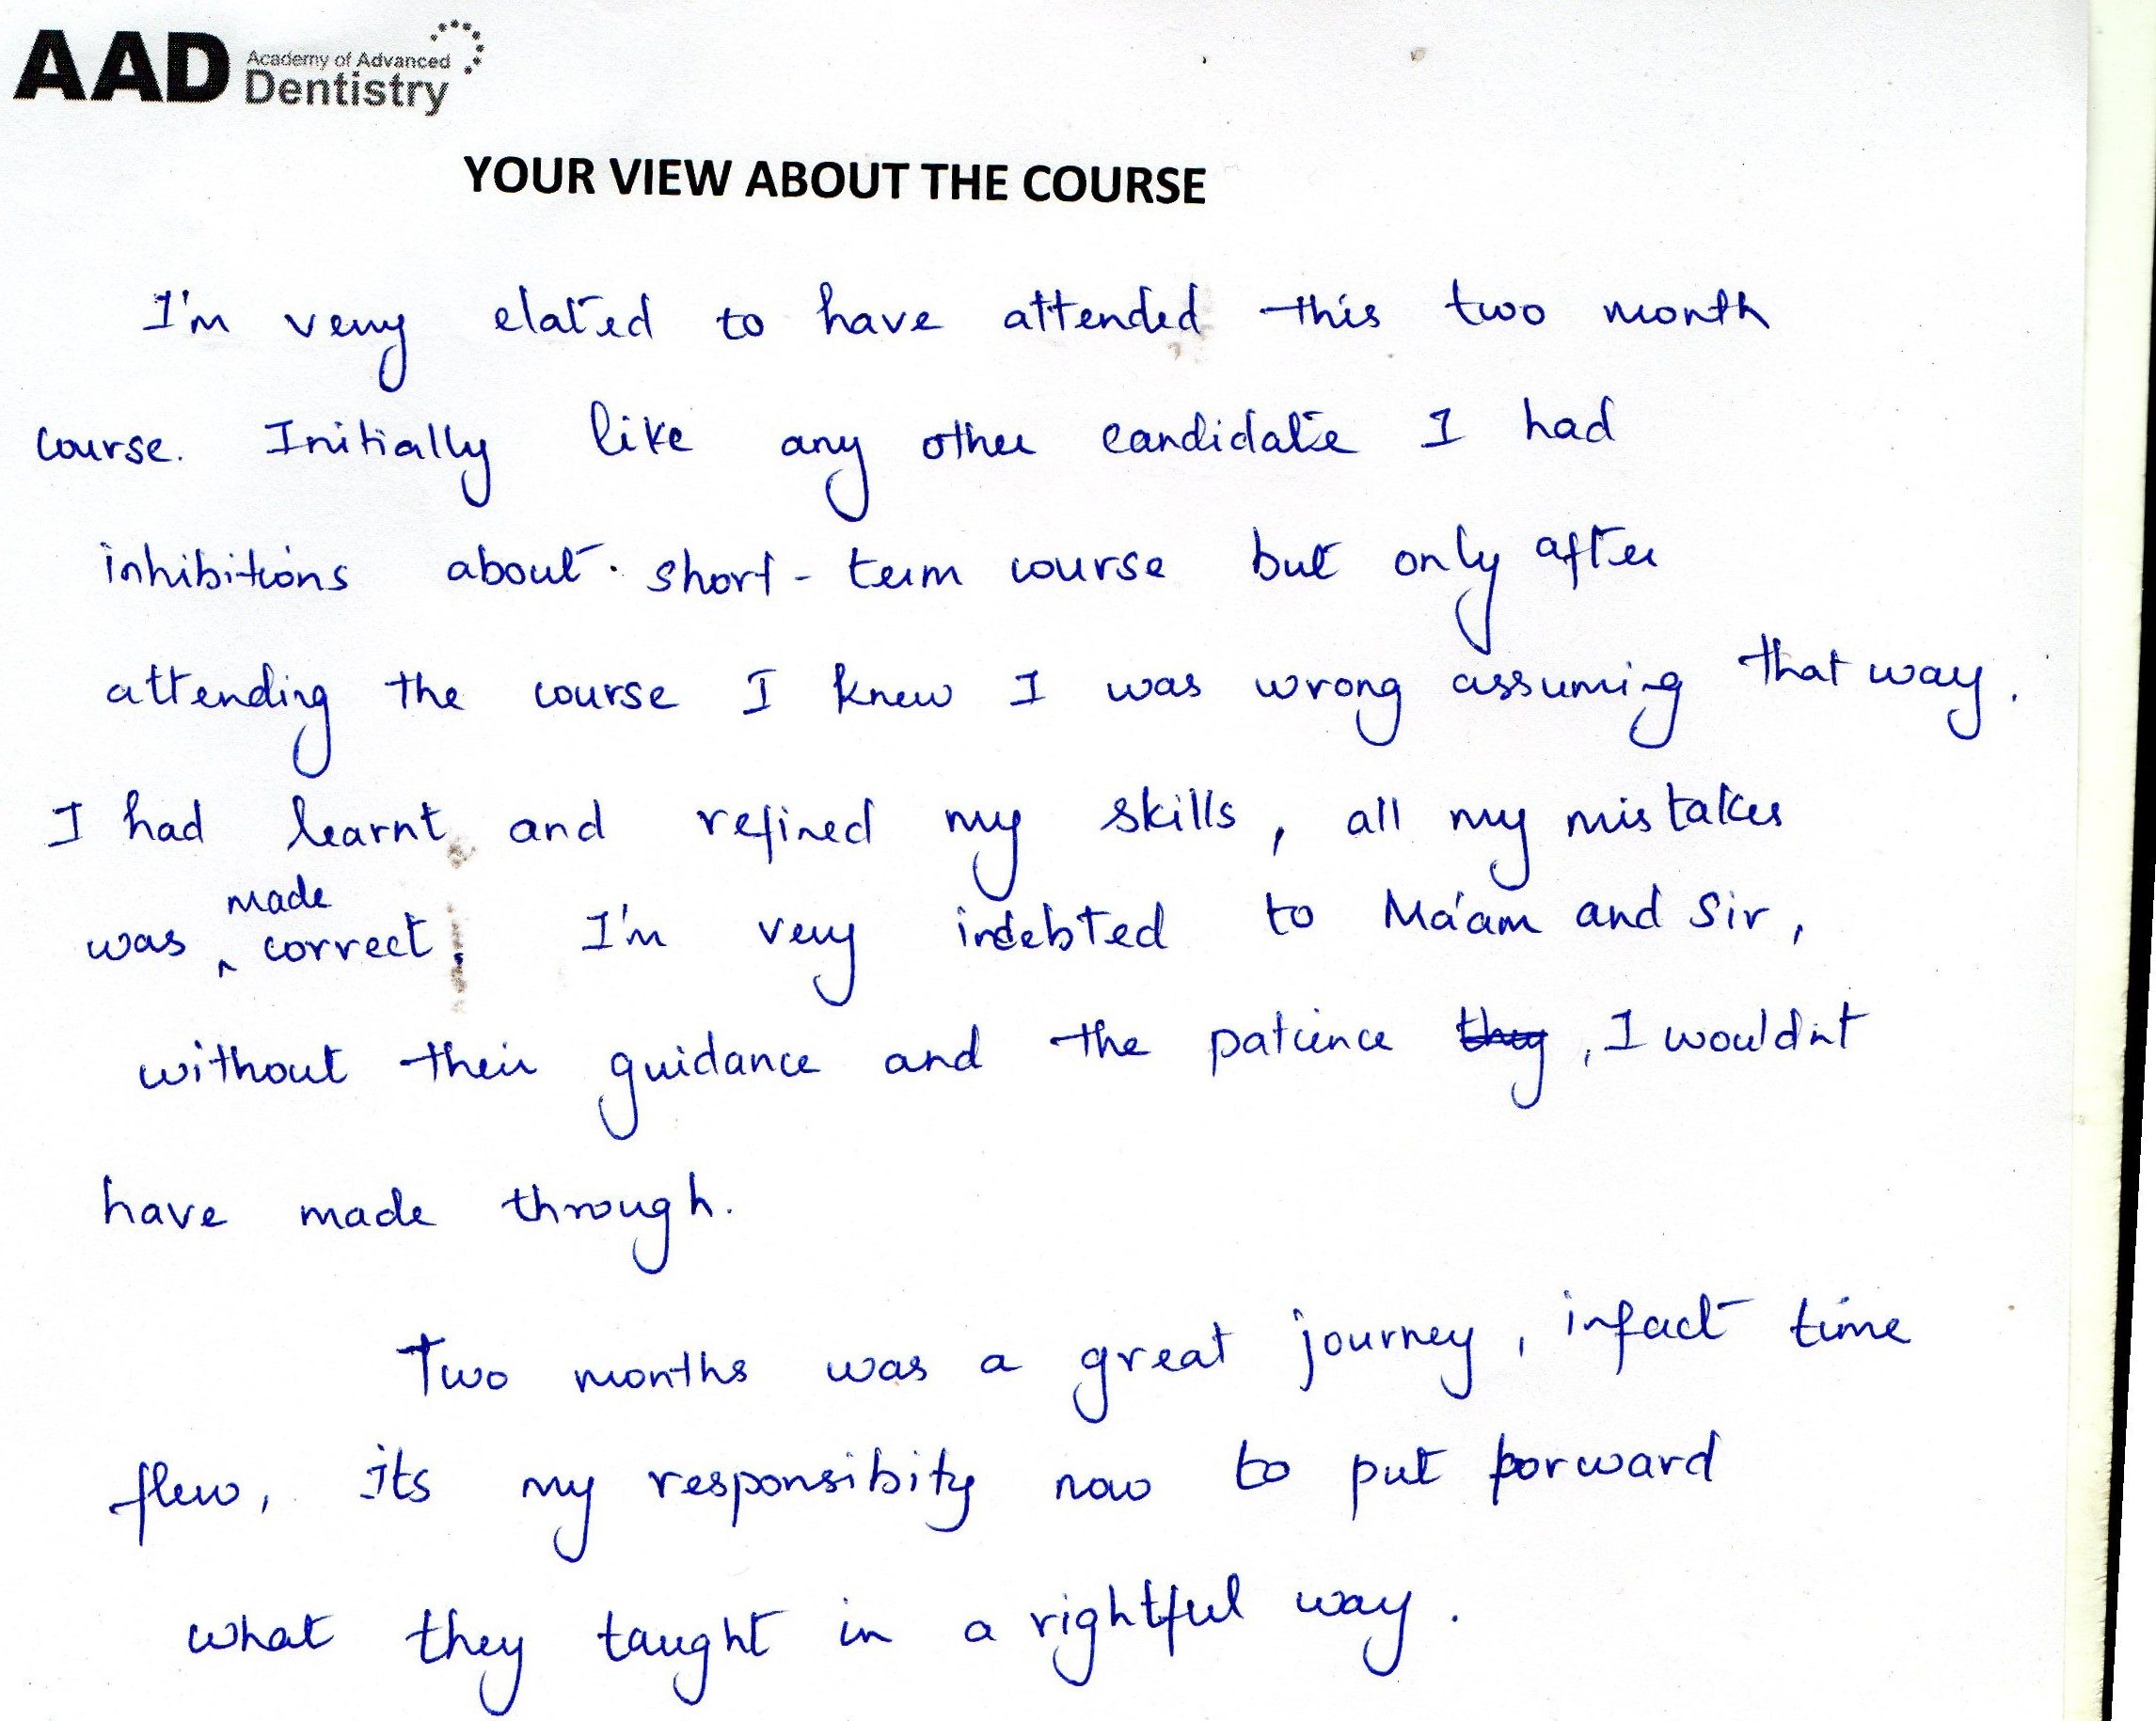 AAD Academy of Advanced
Dentistry
YOUR VIEW ABOUT THE COURSE
I'm very elated to have attended this two month
course. Initially like any other candidate I had
inhibitions about short-term course but only after
attending the course I knew I was wrong assuming that way.
I had learnt and refined my skills, all my mistakes
was made correct. I'm very indebted to Ma'am and Sir,
without their guidance and the patience they, I wouldnt
have made through.
Two months was a great journey, infact time
flew, its my responsibity now to put forward
what they taught in a rightful way.